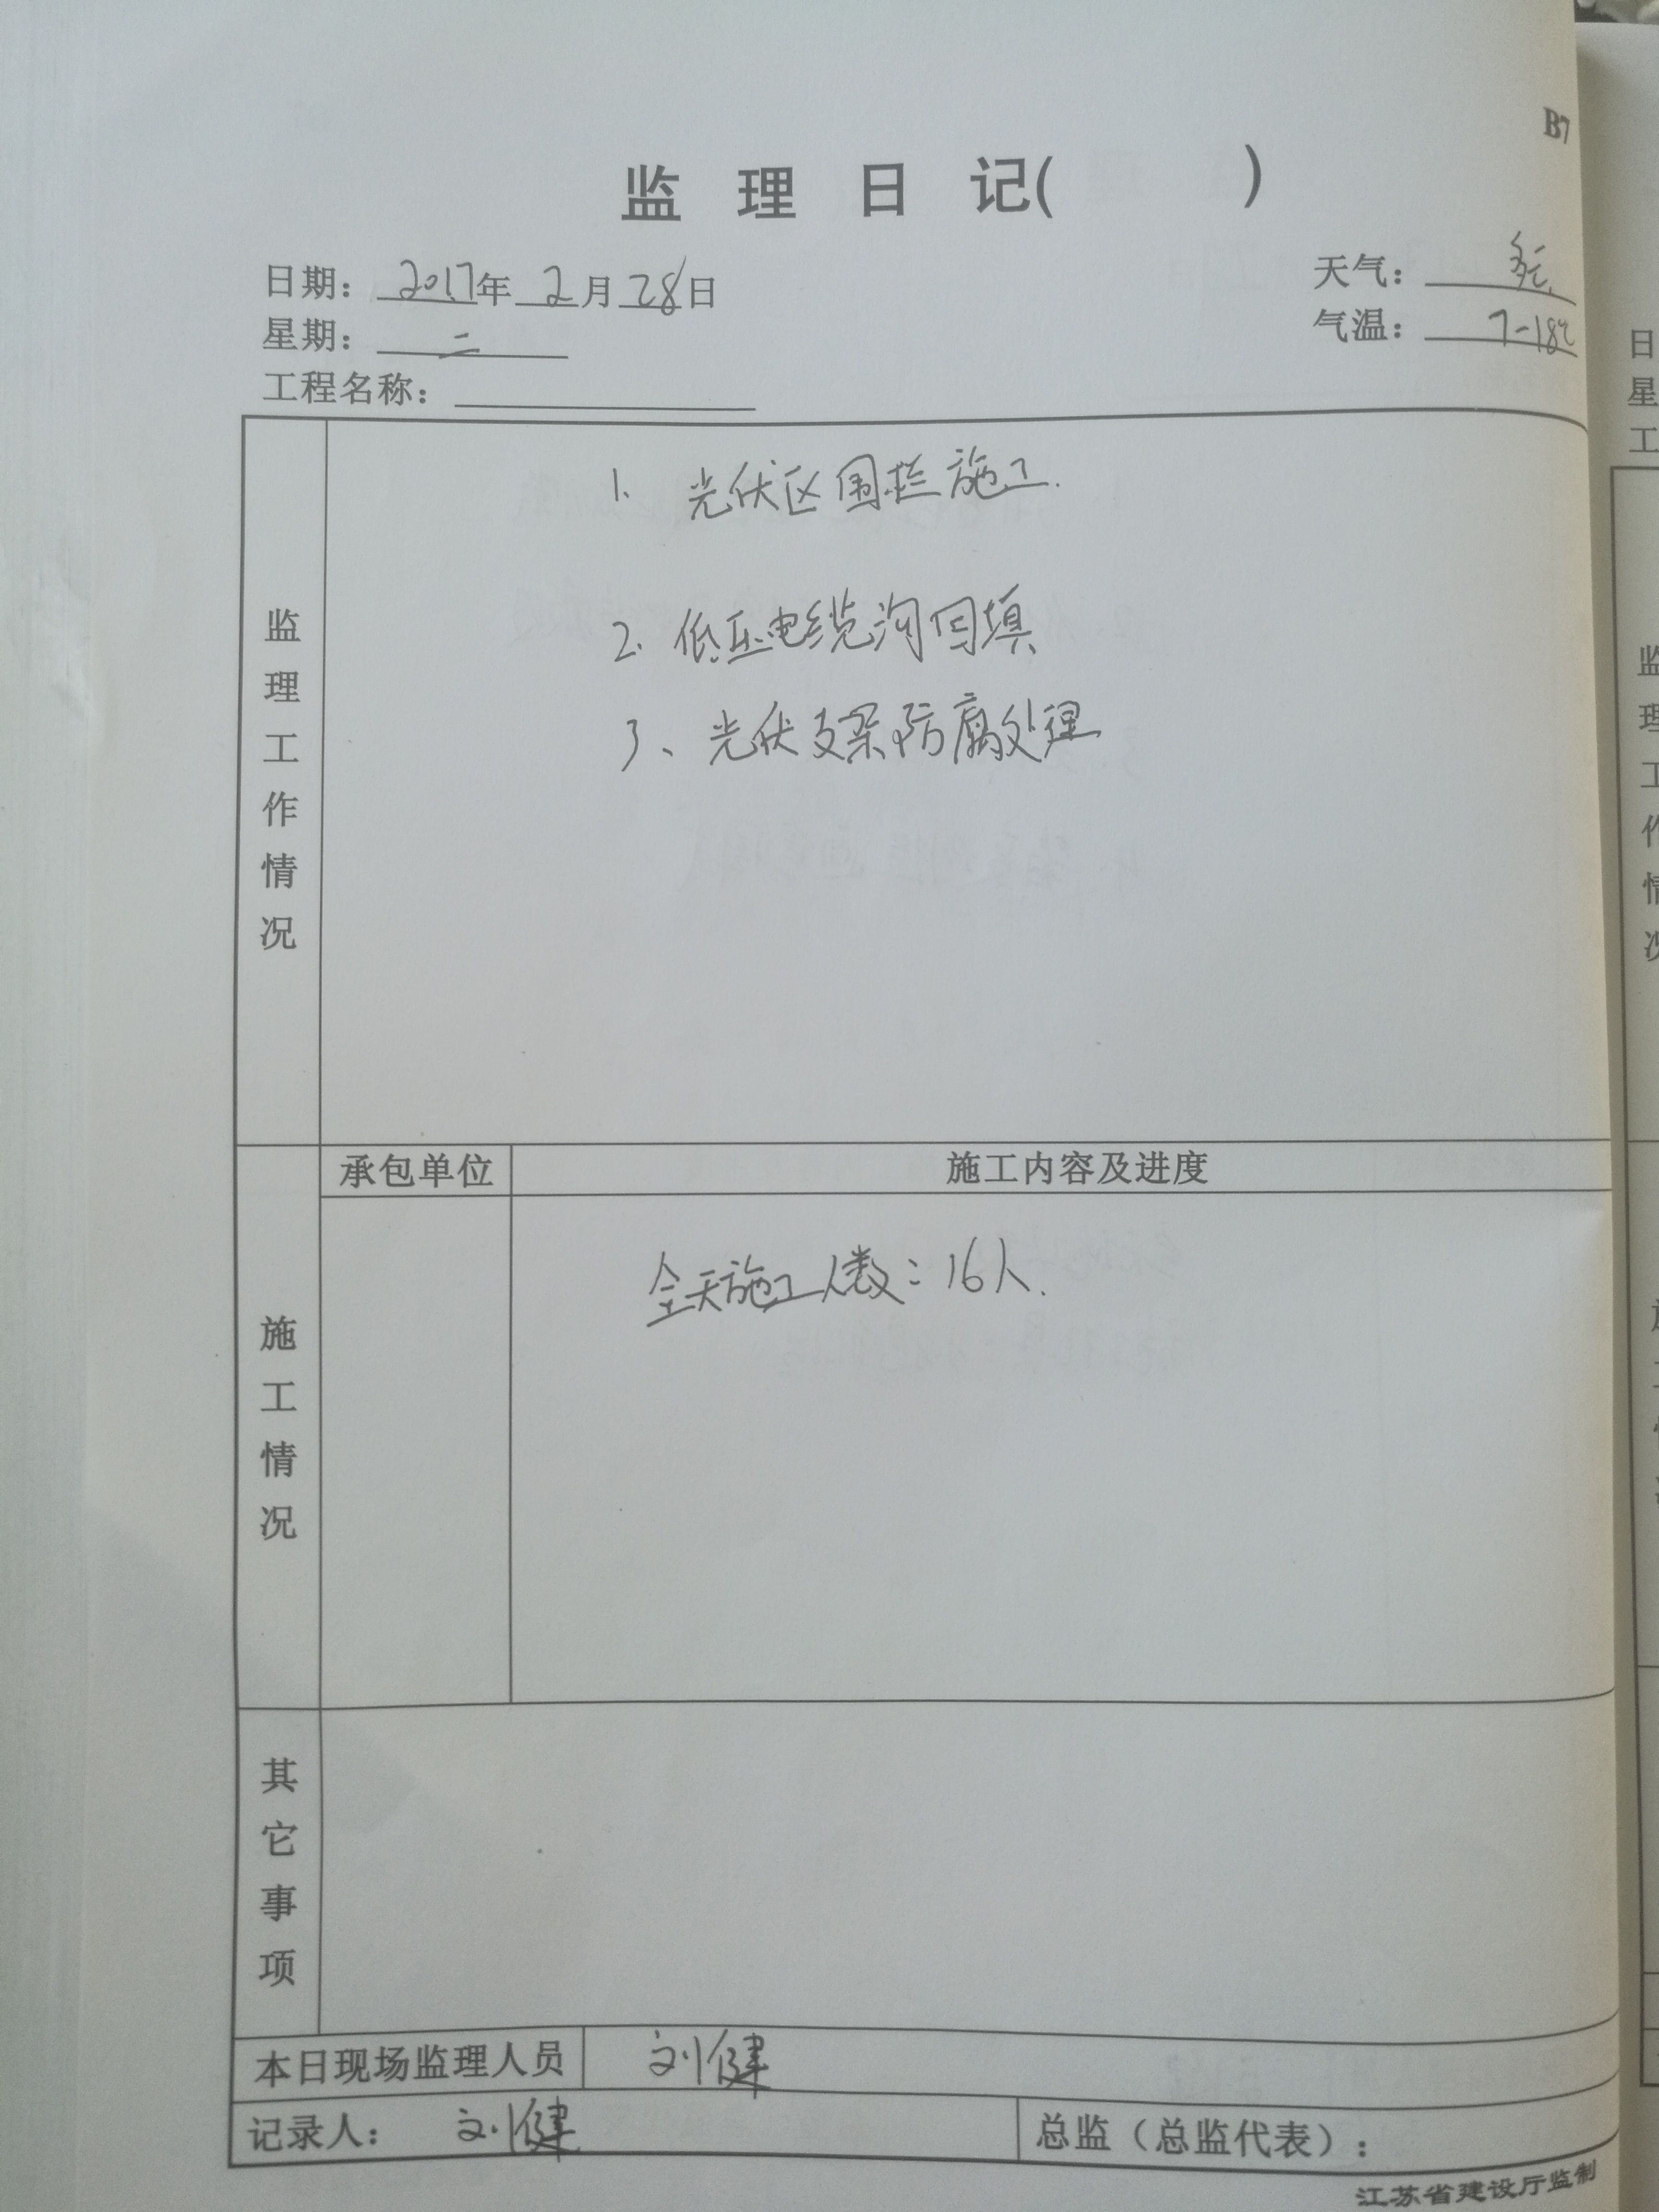 B7
监 理 日 记( )
日期: 2017年 2月 28日
天气: 多云
星期: 二
气温: 7-18℃
工程名称:
监理工作情况
1. 光伏区围栏施工.
2. 低压电缆沟回填
3、光伏支架防腐处理
施工情况
承包单位 施工内容及进度
全天施工人数:16人.
其它事项
本日现场监理人员 刘健
记录人: 刘健 总监(总监代表):
江苏省建设厅监制
日
星
工